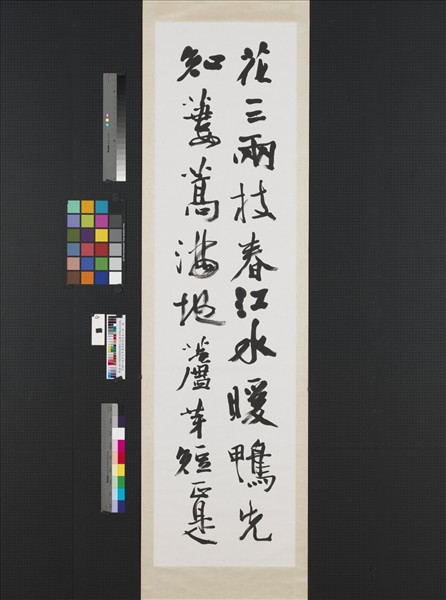 花三兩枝春江水暖鴨先
知蔞蒿滿地蘆芽短正是